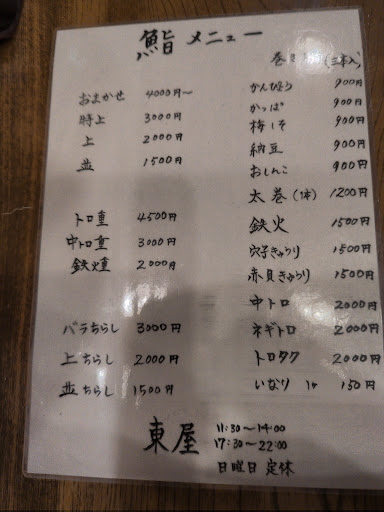 鮨 メニュー
おまかせ 4000円〜
特上 3000円
上 2000円
並 1500円
トロ重 4500円
中トロ重 3000円
鉄火重 2000円
バラちらし 3000円
上ちらし 2000円
並ちらし 1500円
巻 (二本入)
かんぴょう 900円
かっぱ 900円
梅しそ 900円
納豆 900円
おしんこ 900円
太巻(1本) 1200円
鉄火 1500円
穴子きゅうり 1500円
赤貝きゅうり 1500円
中トロ 2000円
ネギトロ 2000円
トロタク 2000円
いなり 1ケ 150円
東屋
11:30〜14:00
17:30〜22:00
日曜日 定休